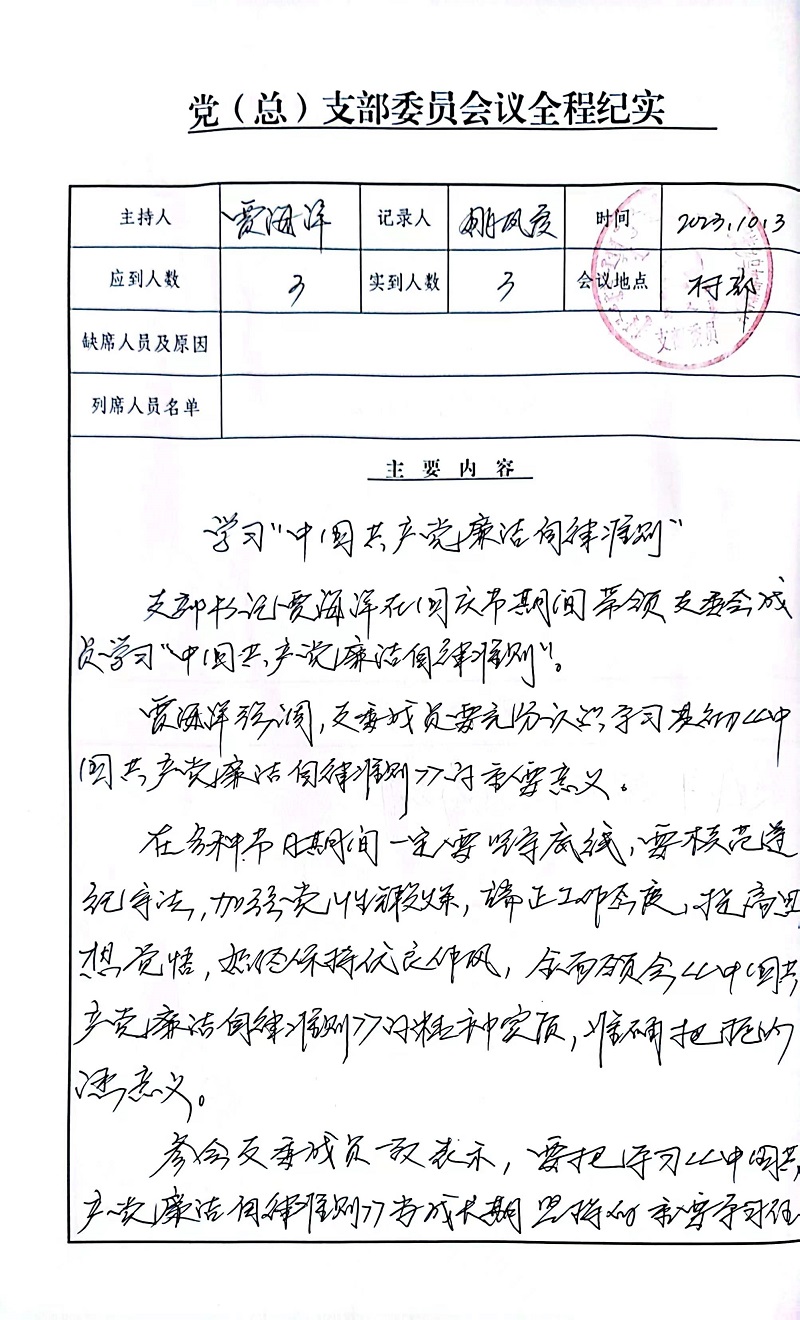 党（总）支部委员会议全程纪实
主持人 贾海洋 记录人 时间 2023.10.3
应到人数 3 实到人数 3 会议地点 村部
缺席人员及原因
列席人员名单
支部委员
主要内容
学习“中国共产党廉洁自律准则”
支部书记贾海洋在国庆节期间带领支委会成
员学习“中国共产党廉洁自律准则”。
贾海洋强调,支委成员要充分认识学习贯彻《中
国共产党廉洁自律准则》的重要意义。
在各种节日期间一定要坚守底线,要模范遵
纪守法,加强党性锻炼,端正工作态度,提高思
想觉悟,始终保持优良作风,全面领会《中国共
产党廉洁自律准则》的精神实质,准确把握
意义。
参会支委成员一致表示,要把学习《中国共
产党廉洁自律准则》当成长期坚持的重要学习任